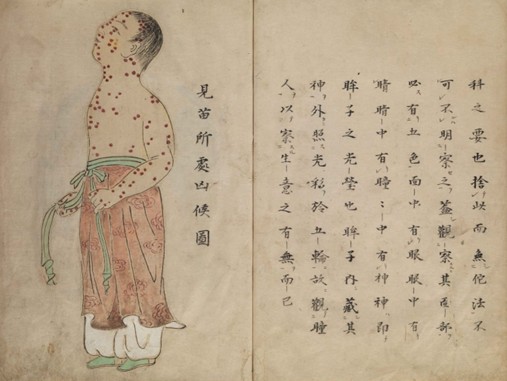 科之要也捨此而無佗法不
可不明察之蓋觀察其面部
必有五色面中有眼眼中有
睛睛中有瞳〻中有神神即
眸子之光瑩也眸子內藏其
神外照光彩於五輪故觀瞳
人以察生意之有無而已
見苗所處凶候圖